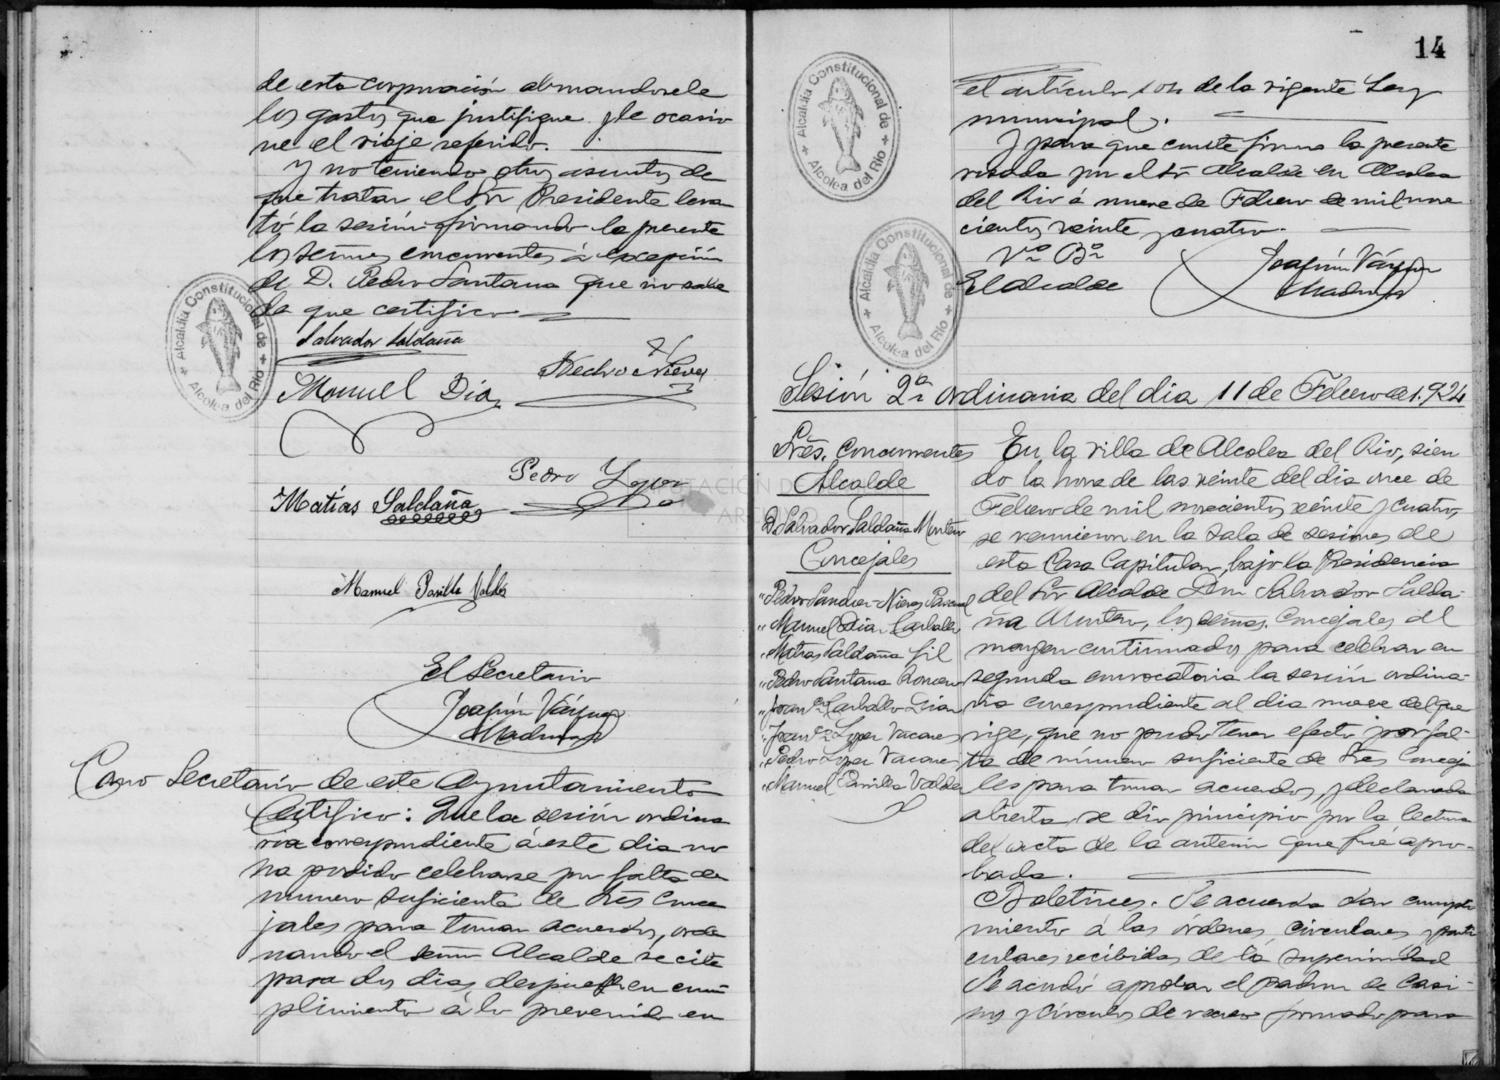 de esta corporación abonandosele
los gastos que justifique y le ocasio
ne el viaje referido.
Y no teniendo otros asuntos de
que tratar el Sr Presidente levan
tó la sesión firmando la presente
los señores concurrentes á excepción
de D. Pedro Santana que no sabe
de que certifico
Salvador Saldaña
Pedro S Nieves
Manuel Díaz
Pedro Lopez
Matías Saldaña
Manuel Parrilla Valdés
El Secretario
Joaquín Vázquez
Madueño
Como Secretario de este Ayuntamiento
Certifico: Que la sesión ordina
ria correspondiente á este dia no
ha podido celebrarse por falta de
numero suficiente de Sres Conce
jales para tomar acuerdos, orde
nando el señor Alcalde se cite
para dos dias despues en cum
plimiento á lo prevenido en
Alcaldía Constitucional de
Alcolea del Rio
14
el artículo 104 de la vigente Ley
municipal.
Y para que conste firmo la presente
visada por el Sr Alcalde en Alcolea
del Rio á nueve de Febrero de mil nove
cientos veinte y cuatro.
Vº Bº
El Alcalde
Joaquín Vázquez
Madueño
Alcaldía Constitucional de
Alcolea del Rio
Alcaldía Constitucional de
Alcolea del Rio
Sesión 2ª ordinaria del dia 11 de Febrero de 1.924
Srẽs. Concurrentes
Alcalde
D Salvador Saldaña Montero
Concejales
" Pedro Sanchez-Nieves Pascual
" Manuel Díaz Carballo
" Matías Saldaña Gil
" Pedro Santana
" Franco Carballo Díaz
" Franco Lopez Vacares
" Pedro Lopez Vacares
" Manuel Parrilla Valdés
En la villa de Alcolea del Rio, sien
do la hora de las veinte del dia once de
Febrero de mil novecientos veinte y cuatro,
se reunieron en la Sala de sesiones de
esta Casa Capitular, bajo la Presidencia
del Sr Alcalde Don Salvador Salda-
ña Montero, los señores Concejales al
margen continuados para celebrar en
segunda convocatoria la sesión ordina-
ria correspondiente al dia nueve del que
rige, que no pudo tener efecto por fal-
ta de número suficiente de Sres Conceja
les para tomar acuerdos, y declarada
abierta se dio principio por la lectura
del acta de la anterior que fué apro-
bada.
Boletines. Se acuerda dar cumpli
miento á las órdenes, circulares y parti
culares recibidas de la superioridad
Se acordó aprobar el padron de Casi-
nos y Circulos de recreo formado para